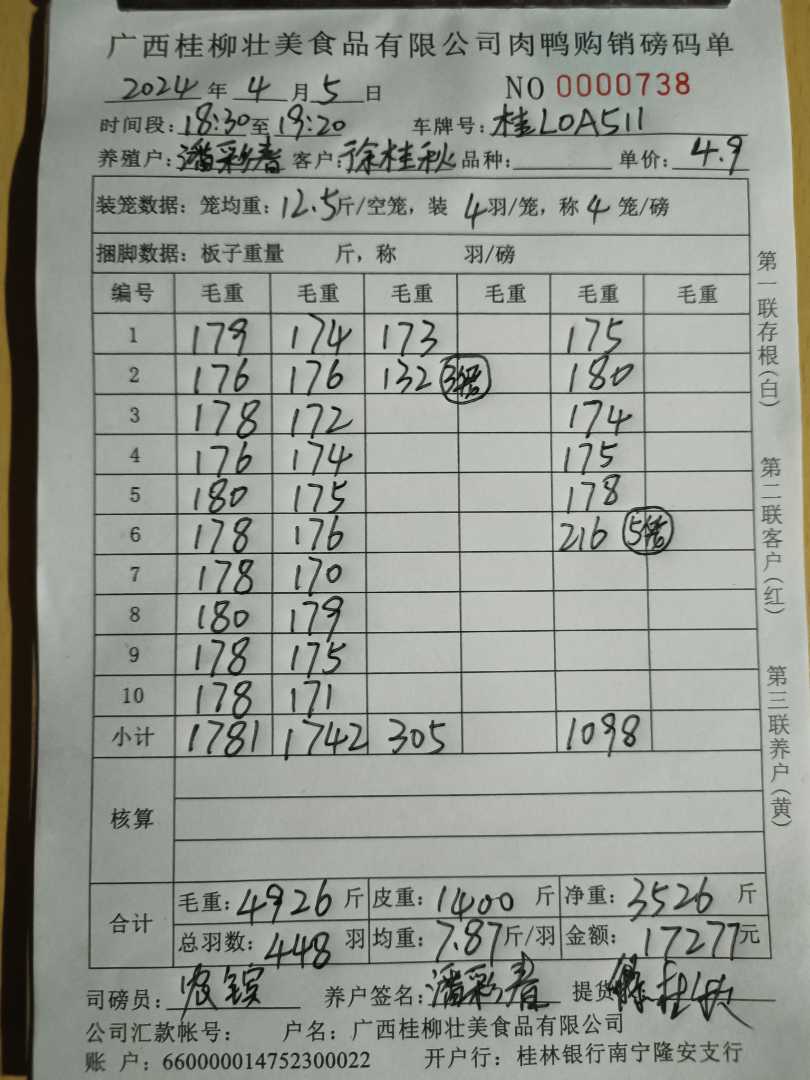 广西桂柳壮美食品有限公司肉鸭购销磅码单
2024年4月5日 NO 0000738
时间段:18:30至19:20 车牌号:桂L0A511
养殖户:潘彩春 客户:徐桂秋 品种: 单价:4.9
装笼数据:笼均重:12.5斤/空笼,装 4羽/笼,称4笼/磅
捆脚数据:板子重量 斤,称 羽/磅
编号 毛重 毛重 毛重 毛重 毛重 毛重
1 179 174 173 175
2 176 176 132 3笼 180
3 178 172 174
4 176 174 175
5 180 175 178
6 178 176 216 5笼
7 178 170
8 180 179
9 178 175
10 178 171
小计 1781 1742 305 1098
核算
合计 毛重:4926斤 皮重:1400斤 净重:3526斤
总羽数:448羽 均重:7.87斤/羽 金额:17277元
司磅员:农 养户签名:潘彩春 提货
公司汇款帐号: 户名:广西桂柳壮美食品有限公司
账 户:660000014752300022 开户行:桂林银行南宁隆安支行
第一联存根(白)
第二联客户(红)
第三联养户(黄)